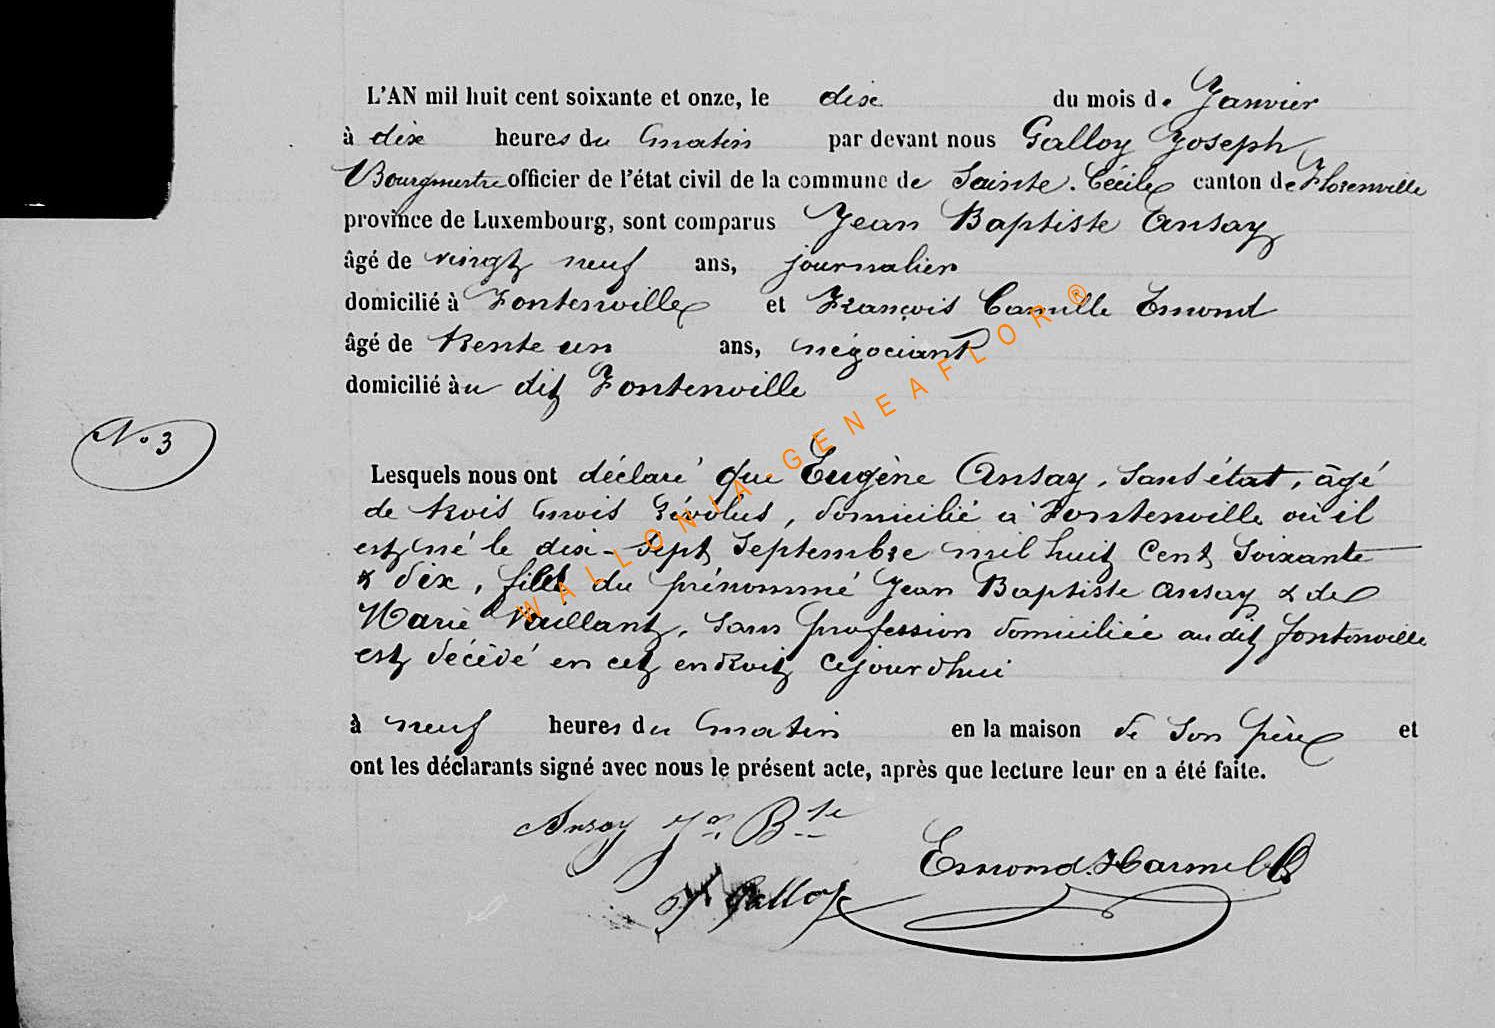 L'AN mil huit cent soixante et onze, le dix du mois de Janvier
à dix heures du matin par devant nous Galloy Joseph
Bourgmestre officier de l'état civil de la commune de Sainte-Cécile canton de Florenville
province de Luxembourg, sont comparus Jean Baptiste Ansay
âgé de vingt neuf ans, journalier
domicilié à Fontenville et François Camille Emond
âgé de trente un ans, négociant
domicilié àu dit Fontenville
N° 3
Lesquels nous ont déclaré que Eugène Ansay, sans état, âgé
de trois mois révolus, domicilié à Fontenville où il
est né le dix-sept Septembre mil huit Cent Soixante
& dix, fils du prénommé Jean Baptiste Ansay & de
Marie Vaillant, sans profession domiciliée au dit fontenville
est décédé en cet endroit cejourdhui
à neuf heures du matin en la maison de son père et
ont les déclarants signé avec nous le présent acte, après que lecture leur en a été faite.
Ansay Jn Bte
Emond. Harmel
J Galloy
WALLONIA-GENEAFLOR®